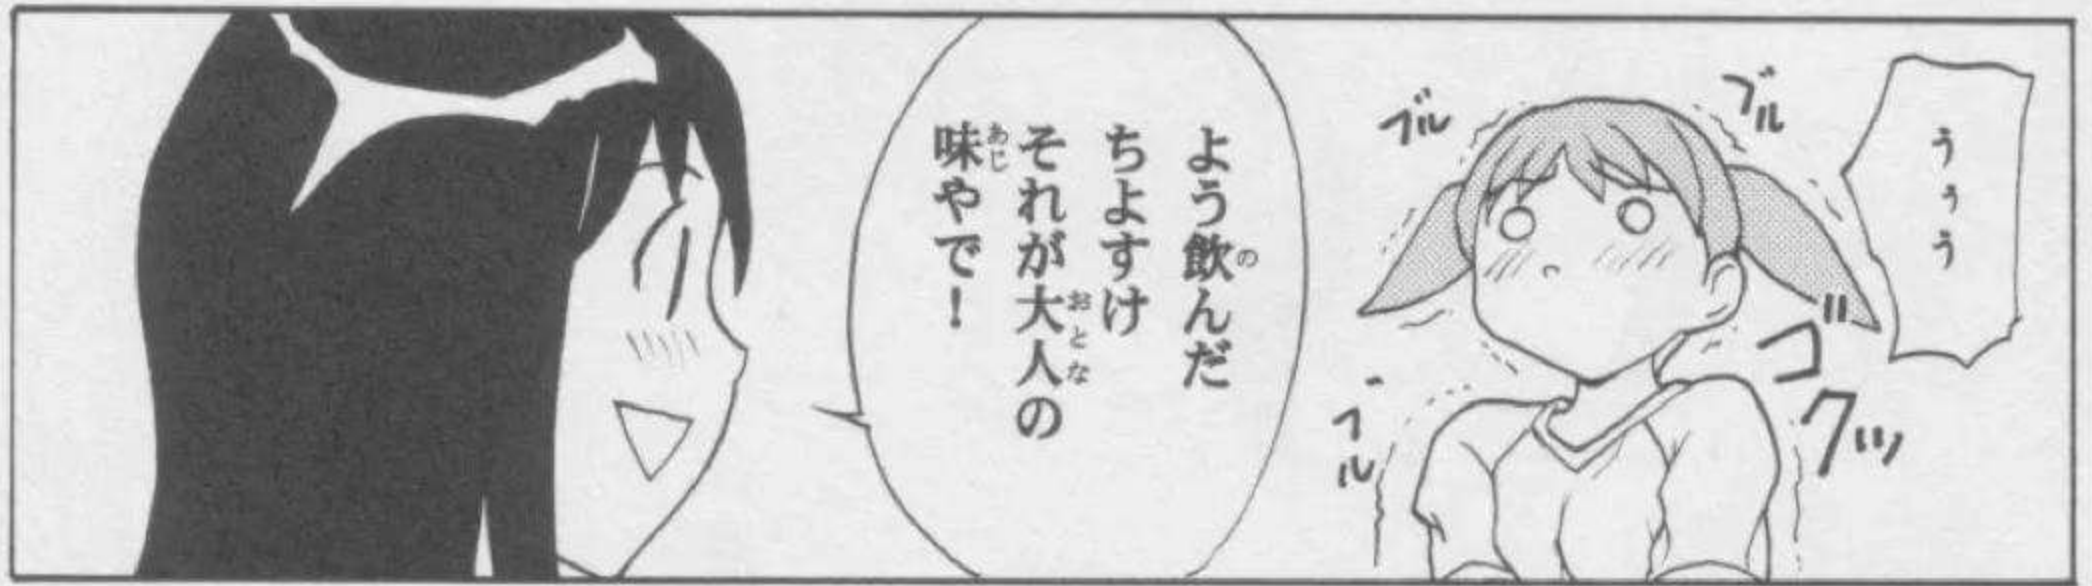 うぅう
ブル
ブル
ゴクッ
ブル
よう飲んだ
ちよすけ
それが大人の
味やで!
の
おとな
あじ